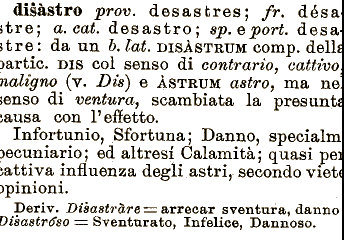 disàstro prov. desastres; fr. désa-
stre; a. cat. desastro; sp. e port. desa-
stre: da un b. lat. DISÀSTRUM comp. della
partic. DIS col senso di contrario, cattivo,
maligno (v. Dis) e ÀSTRUM astro, ma nel
senso di ventura, scambiata la presunta
causa con l'effetto.
Infortunio, Sfortuna; Danno, specialm.
pecuniario; ed altresí Calamità; quasi per
cattiva influenza degli astri, secondo viete
opinioni.
Deriv. Disastràre = arrecar sventura, danno
Disastróso = Sventurato, Infelice, Dannoso.